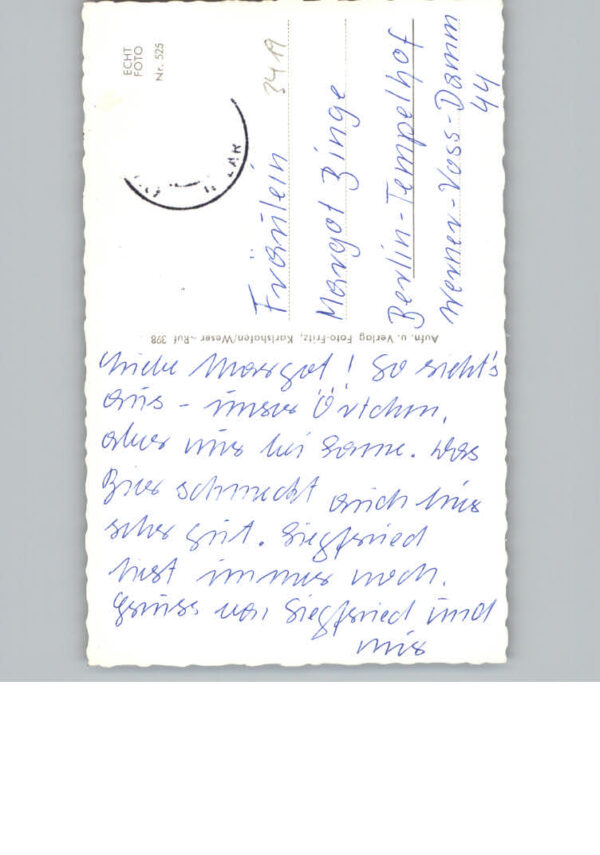 ECHT
FOTO
Nr. 525
3419
Fräulein
Margot Binge
Berlin-Tempelhof
Werner-Voss-Damm
44
Aufn. u. Verlag Foto-Fritz, Karlshafen/Weser - Ruf 398
Liebe Margot! So sieht's
aus - unser Örtchen,
aber nur bei Sonne. Das
Bier schmeckt auch hier
sehr gut. Siegfried
liest immer noch.
Gruss von Siegfried und
mir